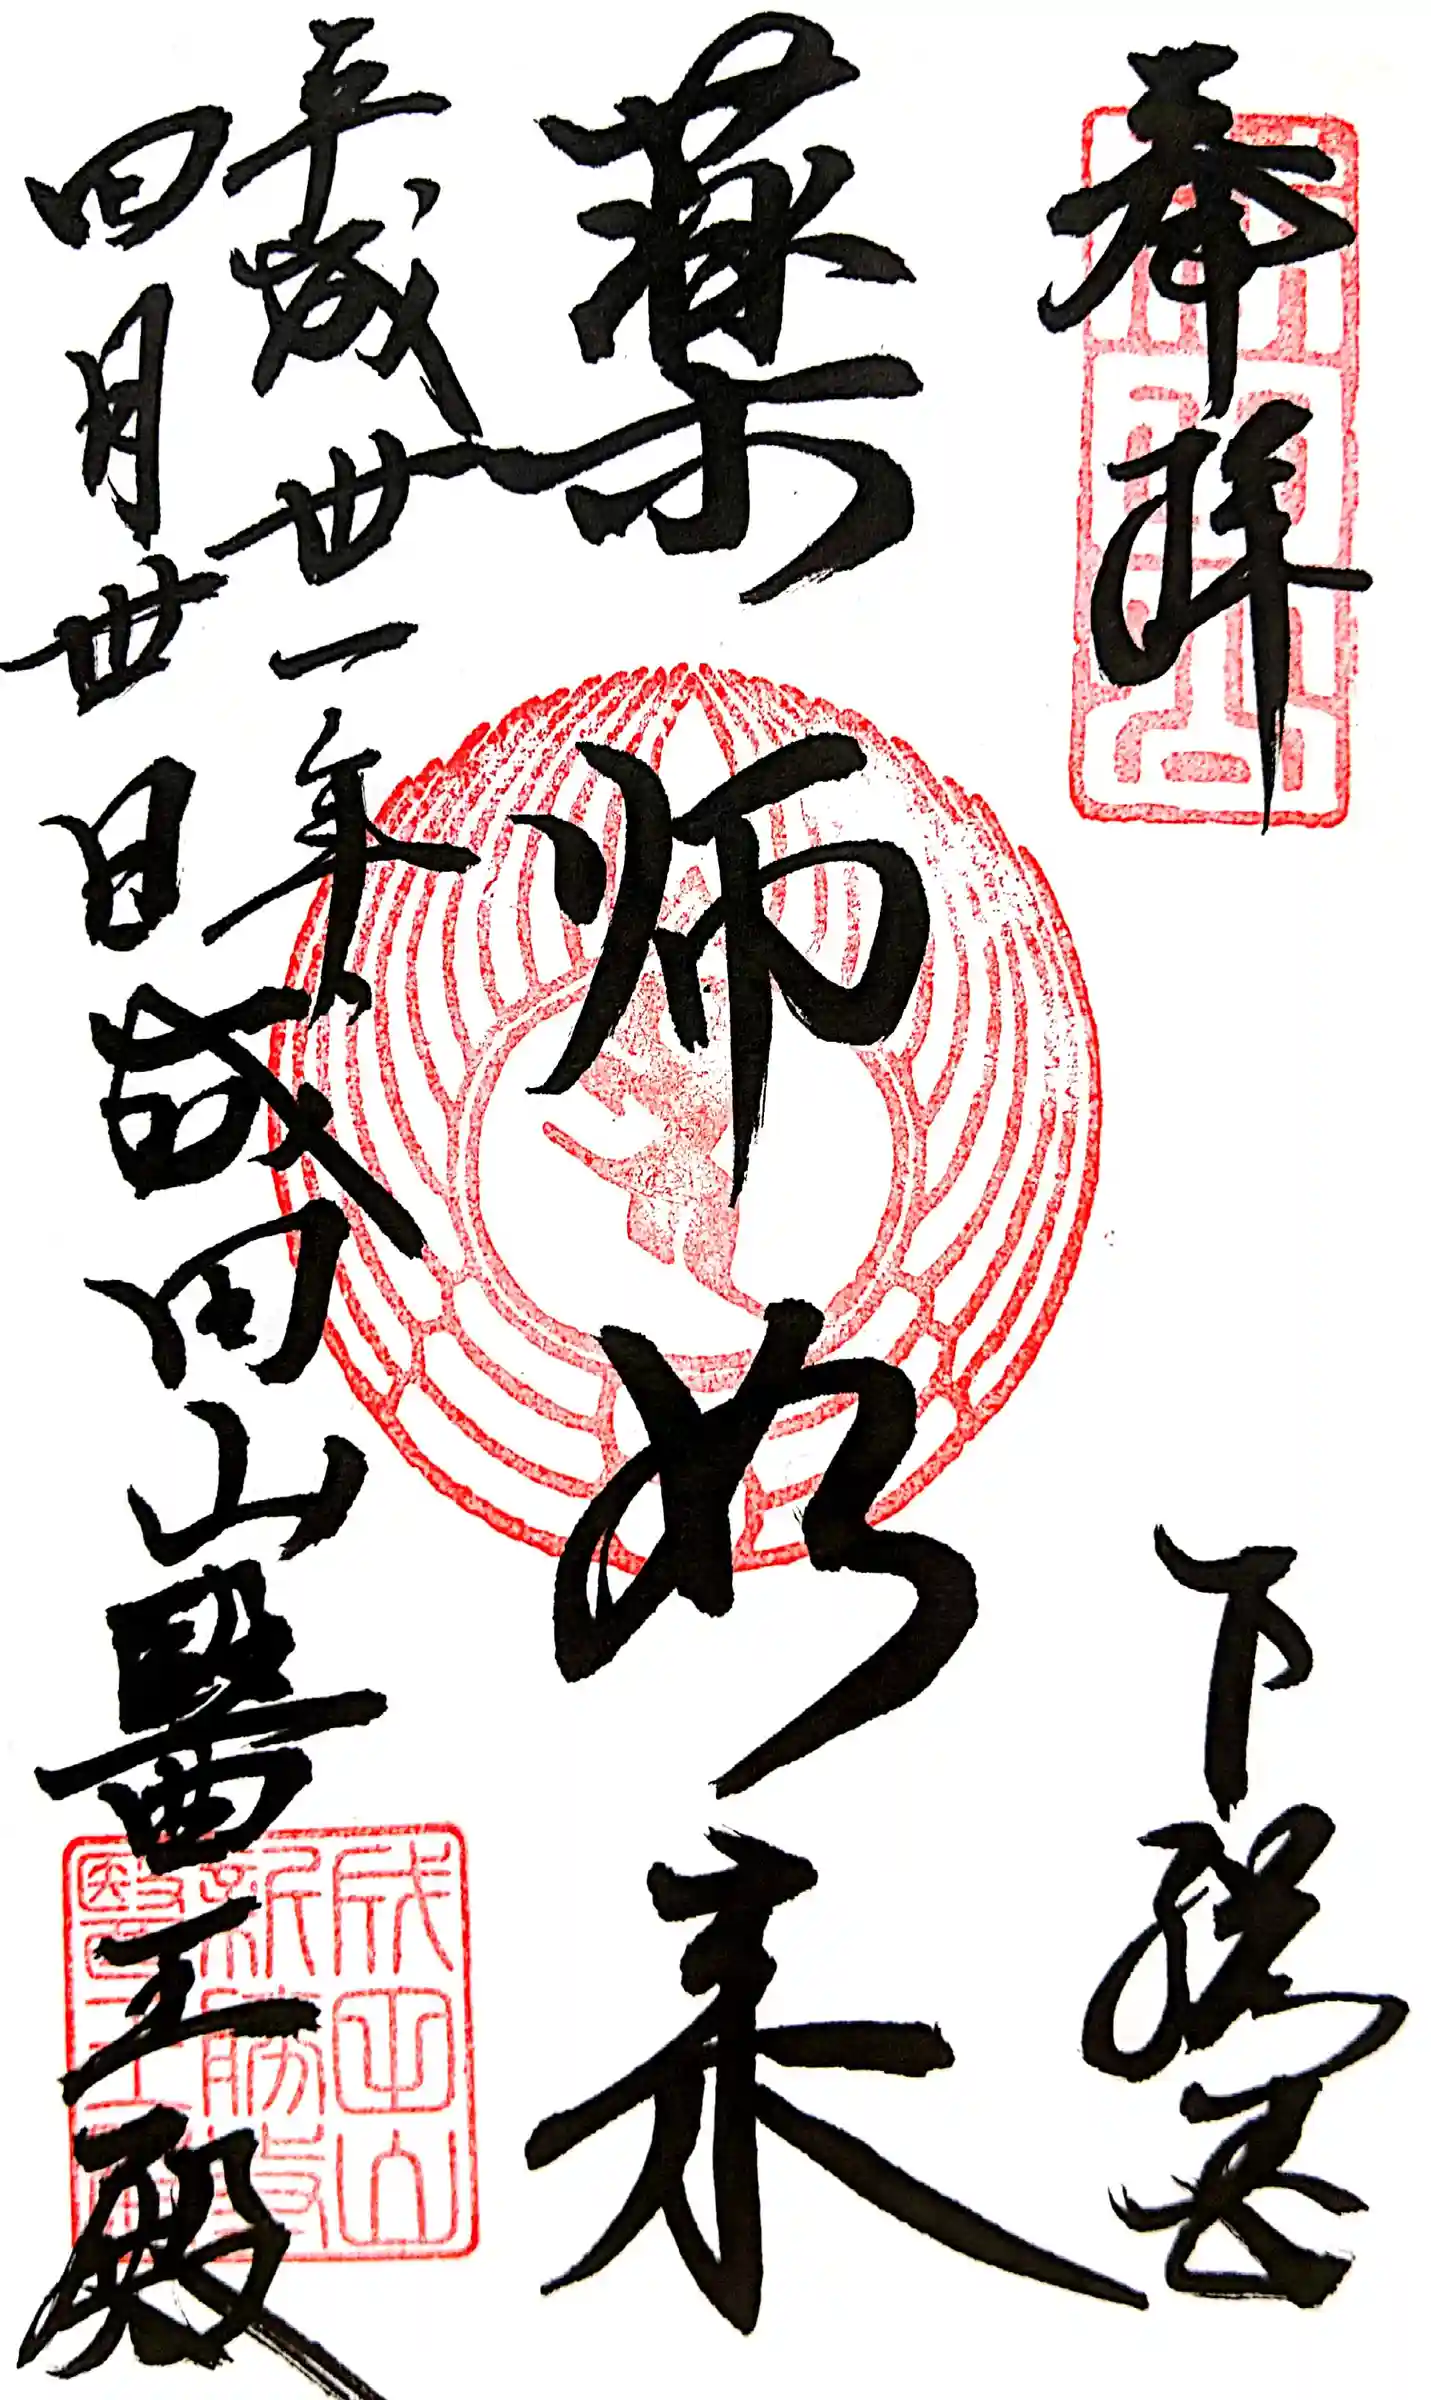 奉拝
下総国
薬師如来
平成卅一年
四月卅日成田山醫王殿
成田山
新勝寺
醫王殿